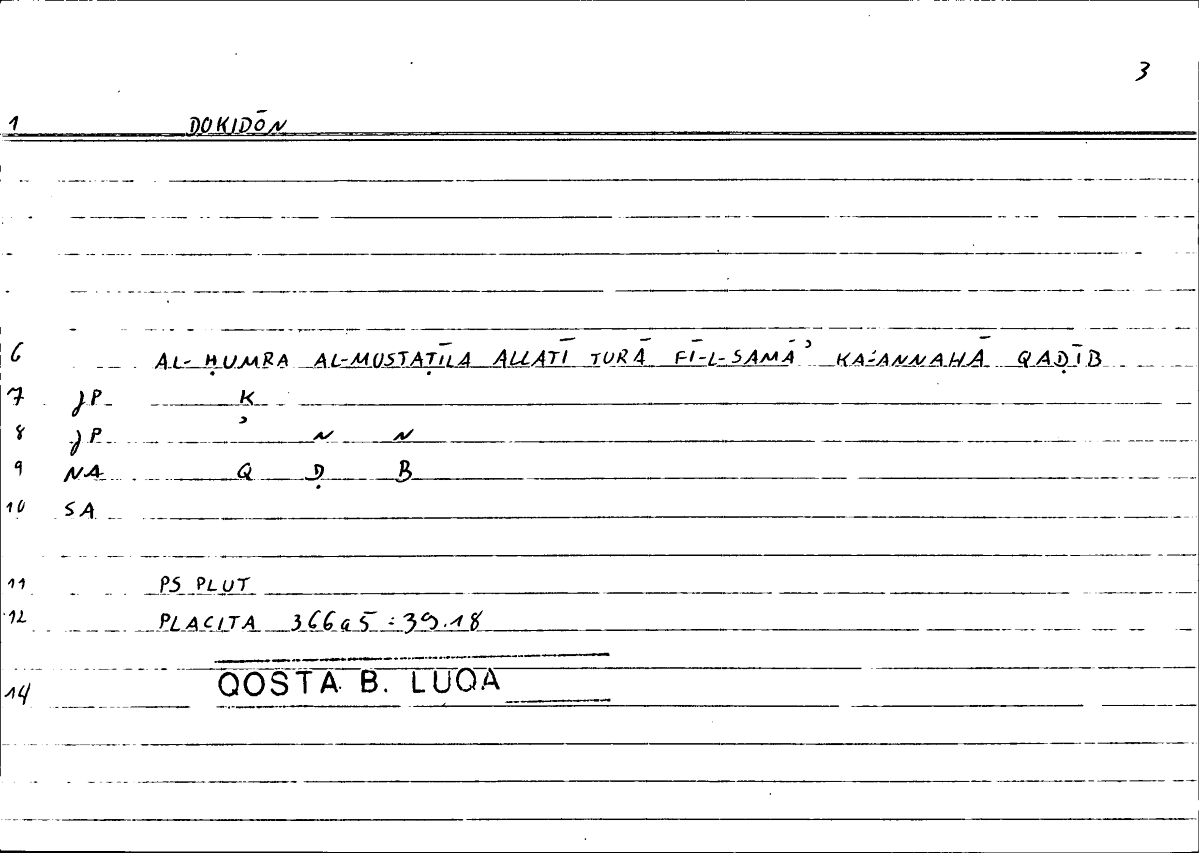 3
1 DOKIDŌN
6 AL-ḤUMRA AL-MUSTAṬĪLA ALLATĪ TURĀ FĪ-L-SAMĀʾ KA-ANNAHĀ QAḌĪB
7 JP K
8 JP ʾ N N
9 NA Q Ḍ B
10 SA
11 PS PLUT
12 PLACITA 366a5 : 39.18
14 QOSTA B. LUQA